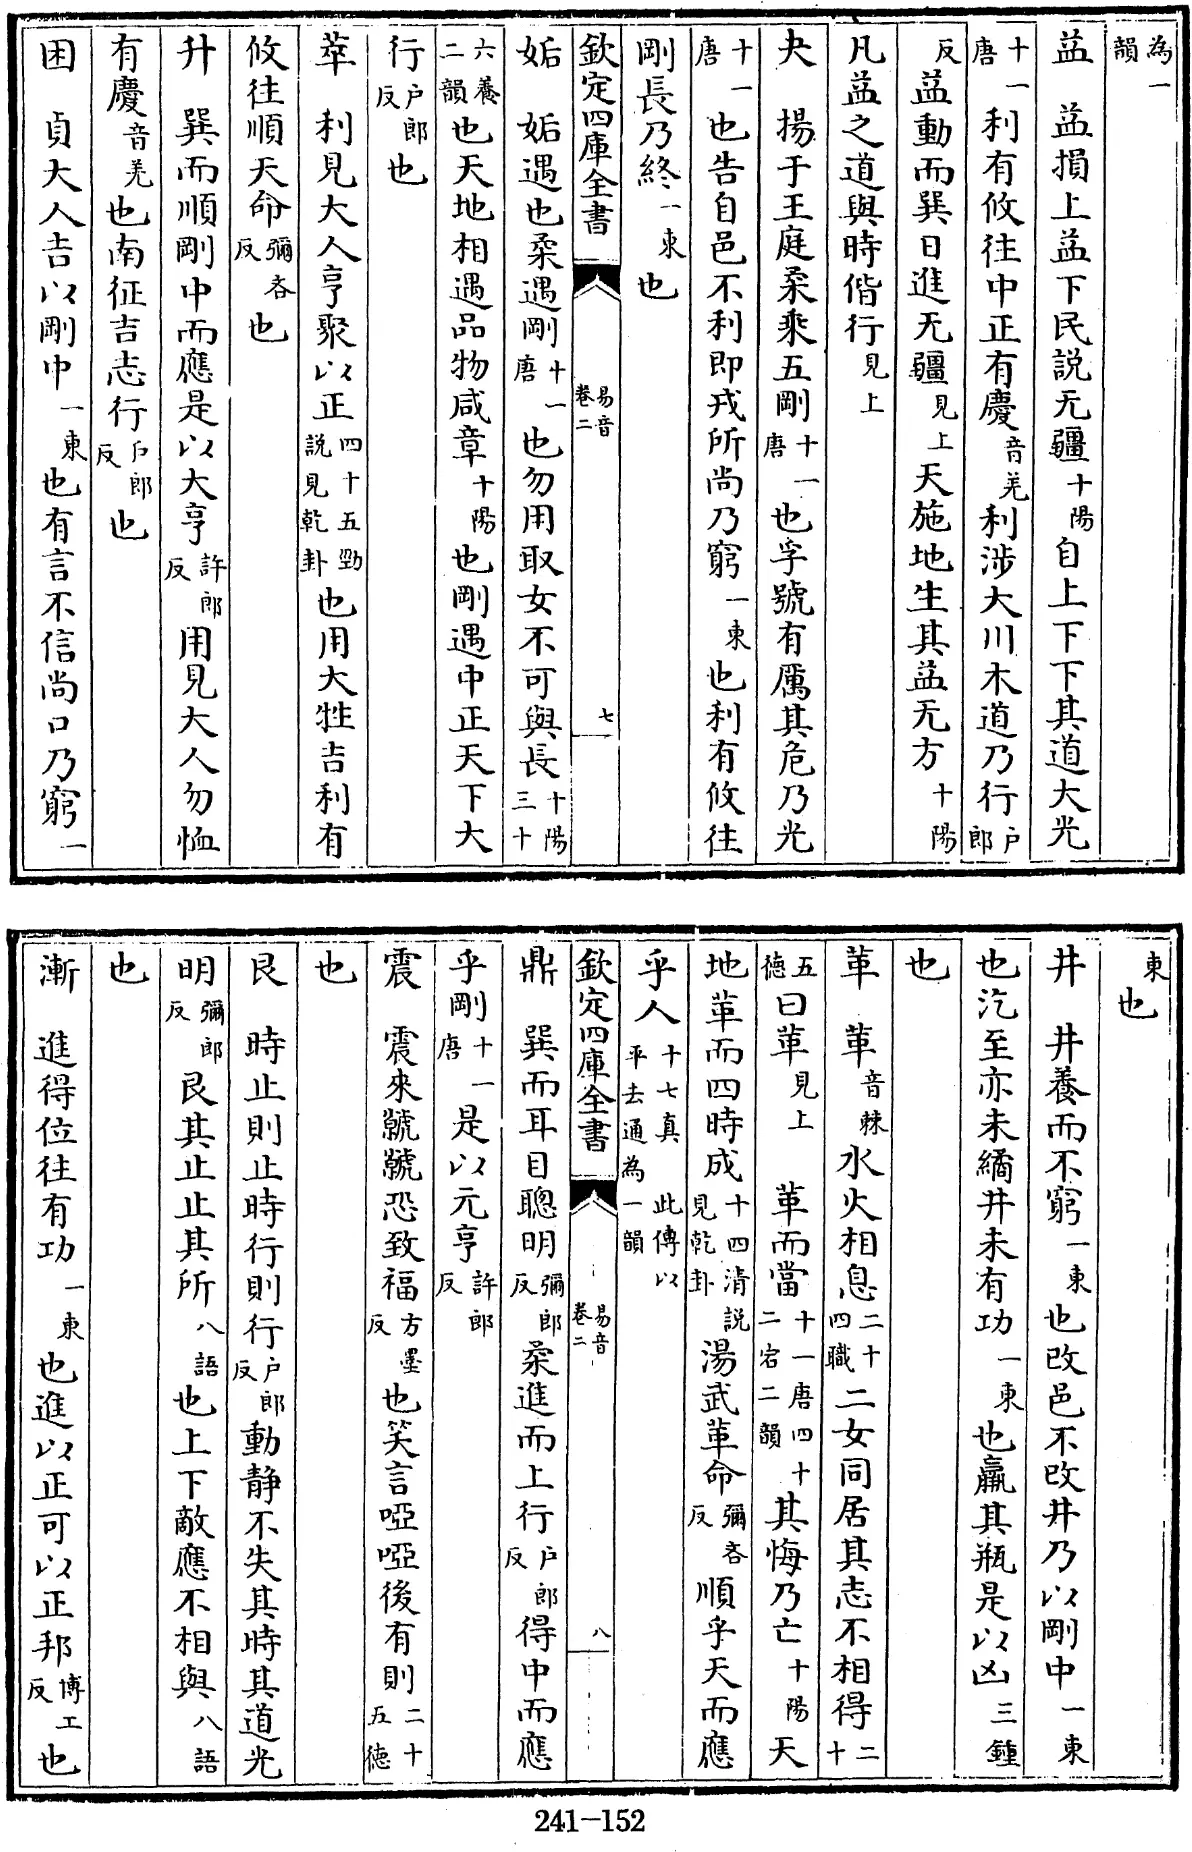 為一韻
益　益損上益下民説无疆十陽自上下下其道大光
十一唐利有攸往中正有慶音羌利涉大川木道乃行户郎
反益動而巽日進无疆見上天施地生其益无方十陽
凡益之道與時偕行見上
夬　揚于王庭柔乘五剛十一唐也孚號有厲其危乃光
十一唐也告自邑不利即戎所尚乃窮一東也利有攸往
剛長乃終一東也
欽定四庫全書　易音卷二　七
姤　姤遇也柔遇剛十一唐也勿用取女不可與長十陽三十
六養二韻也天地相遇品物咸章十陽也剛遇中正天下大
行户郎反也
萃　利見大人亨聚以正四十五勁説見乾卦也用大牲吉利有
攸往順天命彌吝反也
升　巽而順剛中而應是以大亨許郎反用見大人勿恤
有慶音羌也南征吉志行户郎反也
困　貞大人吉以剛中一東也有言不信尚口乃窮一
東也
井　井養而不窮一東也改邑不改井乃以剛中一東
也汔至亦未繘井未有功一東也羸其瓶是以凶三鍾
也
革　革音棘水火相息二十四職二女同居其志不相得二十
五德曰革見上　革而當十一唐四十二宕二韻其悔乃亡十陽天
地革而四時成十四清説見乾卦湯武革命彌吝反順乎天而應
乎人十七真此傳以平去通為一韻
欽定四庫全書　易音卷二　八
鼎　巽而耳目聰明彌郎反柔進而上行户郎反得中而應
乎剛十一唐是以元亨許郎反
震　震來虩虩恐致福方墨反也笑言啞啞後有則二十五德
也
艮　時止則止時行則行户郎反動静不失其時其道光
明彌郎反艮其止止其所八語也上下敵應不相與八語
也
漸　進得位往有功一東也進以正可以正邦博工反也
241-152